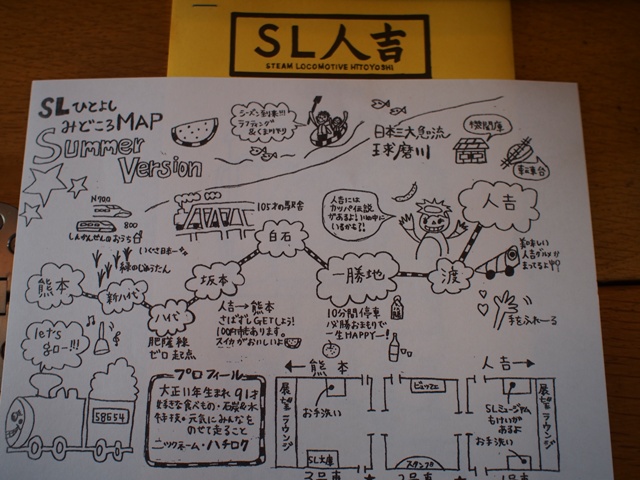 SL人吉
STEAM LOCOMOTIVE HITOYOSHI
SLひとよし
みどころMAP
Summer
Version
シーズン到来!!!
ラフティング
&くま川下り
日本三大急流
球磨川
機関庫
転車台
N700
800
しんかんせんのおうち
105才の駅舎
人吉には
カッパ伝説
があるよ
いるかも?!
人吉
いぐさ日本一
緑のじゅうたん
熊本
新八代
八代
坂本
白石
一勝地
渡
美味しい
人吉グルメが
まってるよ
肥薩線
ゼロ起点
人吉→熊本
さばずしGETしよう!
スイカがおいしいよ
10分間停車
必勝おまもりで
一生HAPPYー!
手をふれーる
let's
go—!!!
58654
プロフィール
大正11年生まれ 91才
好きな食べもの・石炭&水
特技。元気にみんなを
のせて走ること
ニックネーム・ハチロク
熊本
人吉
展望ラウンジ
お手洗い
SL文庫
3号車
ビュッフェ
スタンプ
2号車
SLミュージアム
もけいが
あるよ
お手洗い
1号車
展望ラウンジ